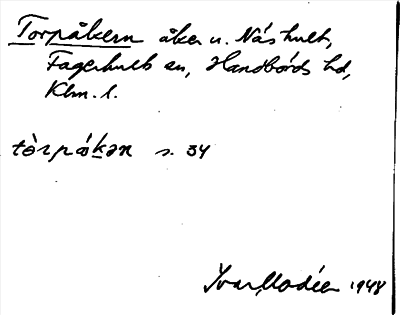 Torpåkern åker u. Näshult,
Fagerhults sn, Handbörds hd,
Klm. l.
tòrpåkən s. 34
Ivar Modéer 1948